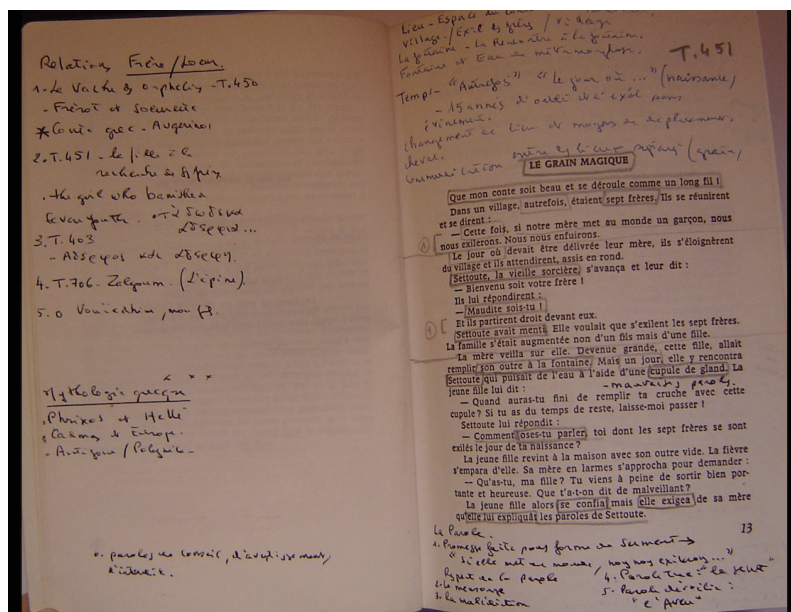 Relations Frère/Soeur.
1. La Vache des orphelins - T.450
- Frérot et Soeurette
* Conte grec - Augerinos
2. T.451 - La fille à la
recherche de ses frères
. the girl who banished
seven youths. • Τα δώδεκα
αδέρφια...
3. T.403
- Αδερφος και αδερφη.
4. T.706. Zelgoum. (L'épine).
5. O mon fils.
* * *
Mythologie grecque
. Phrixos et Hellé
. Cadmos et Europe.
- Antigone / Polynice -
paroles de conseil, d'avertissement,
d'interdit.
Lieu - Espace du conte
Village / Exil des frères / Village
La fontaine - La Rencontre à la fontaine.
Fontaine et Eau de métamorphose.
T.451
Temps - "Autrefois" "Le jour où..." (naissance,
- 15 années d'oubli et d'exil sans
événement.
changement de lieu et moyens de déplacement
cheval.
Communication entre les lieux (grain,
LE GRAIN MAGIQUE
Que mon conte soit beau et se déroule comme un long fil !
Dans un village, autrefois, étaient sept frères. Ils se réunirent
et se dirent :
— Cette fois, si notre mère met au monde un garçon, nous
nous exilerons. Nous nous enfuirons.
Le jour où devait être délivrée leur mère, ils s'éloignèrent
du village et ils attendirent, assis en rond.
Settoute, la vieille sorcière, s'avança et leur dit :
— Bienvenu soit votre frère !
Ils lui répondirent :
— Maudite sois-tu !
Et ils partirent droit devant eux.
Settoute avait menti. Elle voulait que s'exilent les sept frères.
La famille s'était augmentée non d'un fils mais d'une fille.
La mère veilla sur elle. Devenue grande, cette fille, allait
remplir son outre à la fontaine. Mais un jour, elle y rencontra
Settoute qui puisait de l'eau à l'aide d'une cupule de gland. La
jeune fille lui dit :
- mauvaises paroles.
— Quand auras-tu fini de remplir ta cruche avec cette
cupule ? Si tu as du temps de reste, laisse-moi passer !
Settoute lui répondit :
— Comment oses-tu parler, toi dont les sept frères se sont
exilés le jour de ta naissance ?
La jeune fille revint à la maison avec son outre vide. La fièvre
s'empara d'elle. Sa mère en larmes s'approcha pour demander :
— Qu'as-tu, ma fille ? Tu viens à peine de sortir bien por-
tante et heureuse. Que t'a-t-on dit de malveillant ?
La jeune fille alors se confia mais elle exigea de sa mère
qu'elle lui expliquât les paroles de Settoute.
13
La Parole.
1. Promesse faite sous forme de serment →
"si elle met au monde, nous nous exilerons..."
Respect de la Parole
2. Le mensonge
3. la malédiction
4. Parole tue: "le secret"
5. Parole dévoilée :
"l'Aveu"